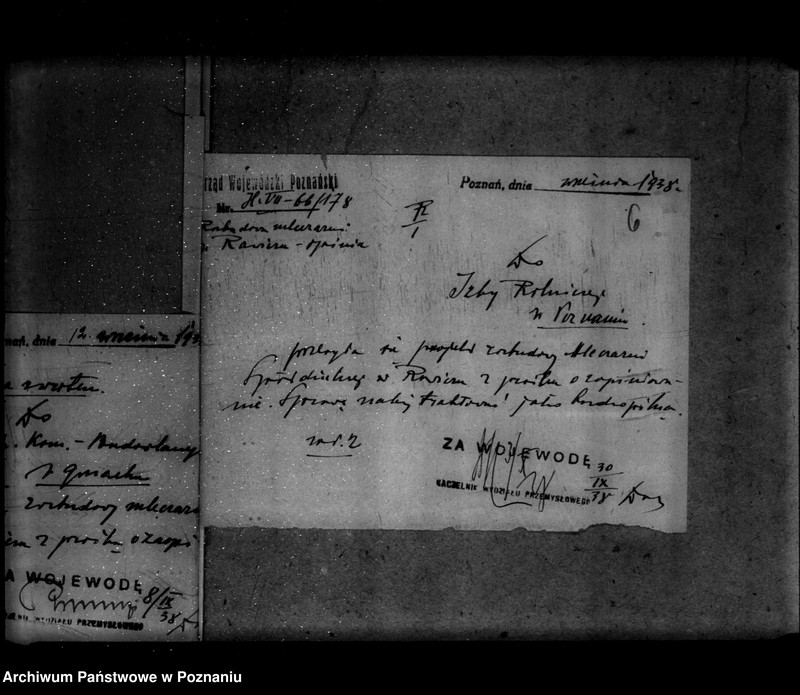 rząd Wojewódzki Poznański
Nr. H.VII-66/178
Rozbudowa mleczarni
w Rawiczu - opinia
Poznań, dnia września 1938.
6
Do
Izby Rolniczej
w Poznaniu.
przesyła się projekt rozbudowy Mleczarni
Spółdzielczej w Rawiczu z prośbą o zaopiniowa-
nie. Sprawę należy traktować jako bardzo pilną.
zał. 2
ZA WOJEWODĘ
NACZELNIK WYDZIAŁU PRZEMYSŁOWEGO
30
IX
38
nań, dnia 12 września 193
Do
Kom. - Budowlanego
w gmachu
rozbudowy mleczarni
z prośbą o zaopi
A WOJEWODĘ
8/IX
38
ELNIK WYDZIAŁU PRZEMYSŁOWEGO
Archiwum Państwowe w Poznaniu